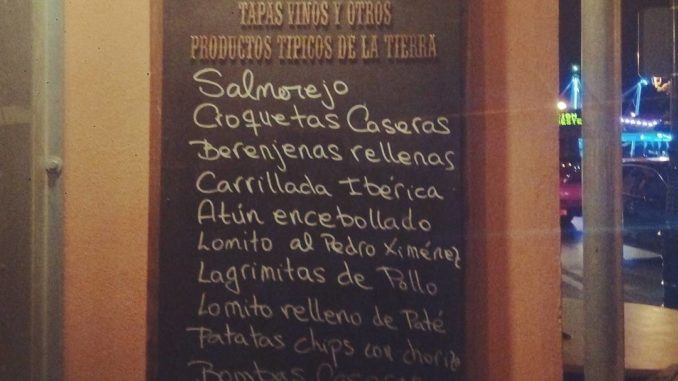 TAPAS VINOS Y OTROS
PRODUCTOS TIPICOS DE LA TIERRA
Salmorejo
Croquetas Caseras
Berenjenas rellenas
Carrillada Ibérica
Atún encebollado
Lomito al Pedro Ximénez
Lagrimitas de Pollo
Lomito relleno de Paté
Patatas chips con chorizo
Bombas Caseras